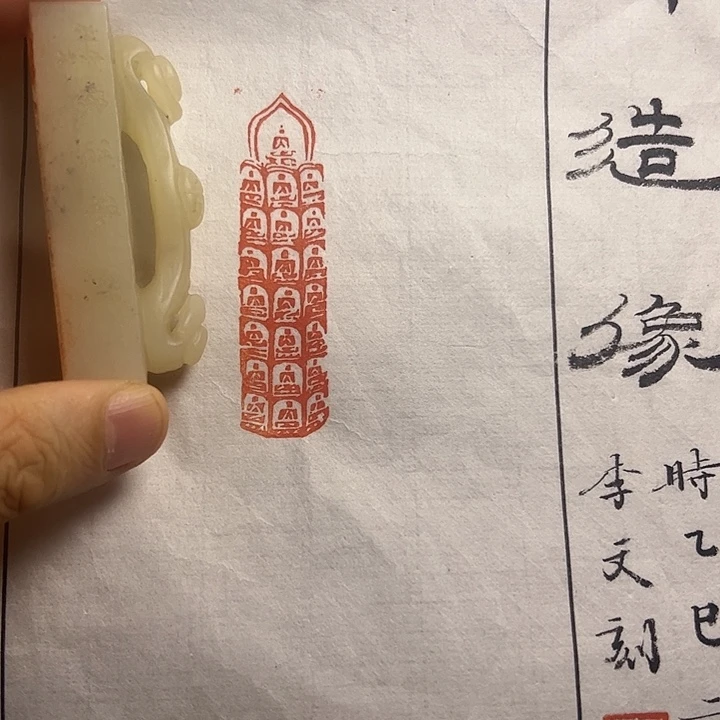 造像
時乙巳
李文刻